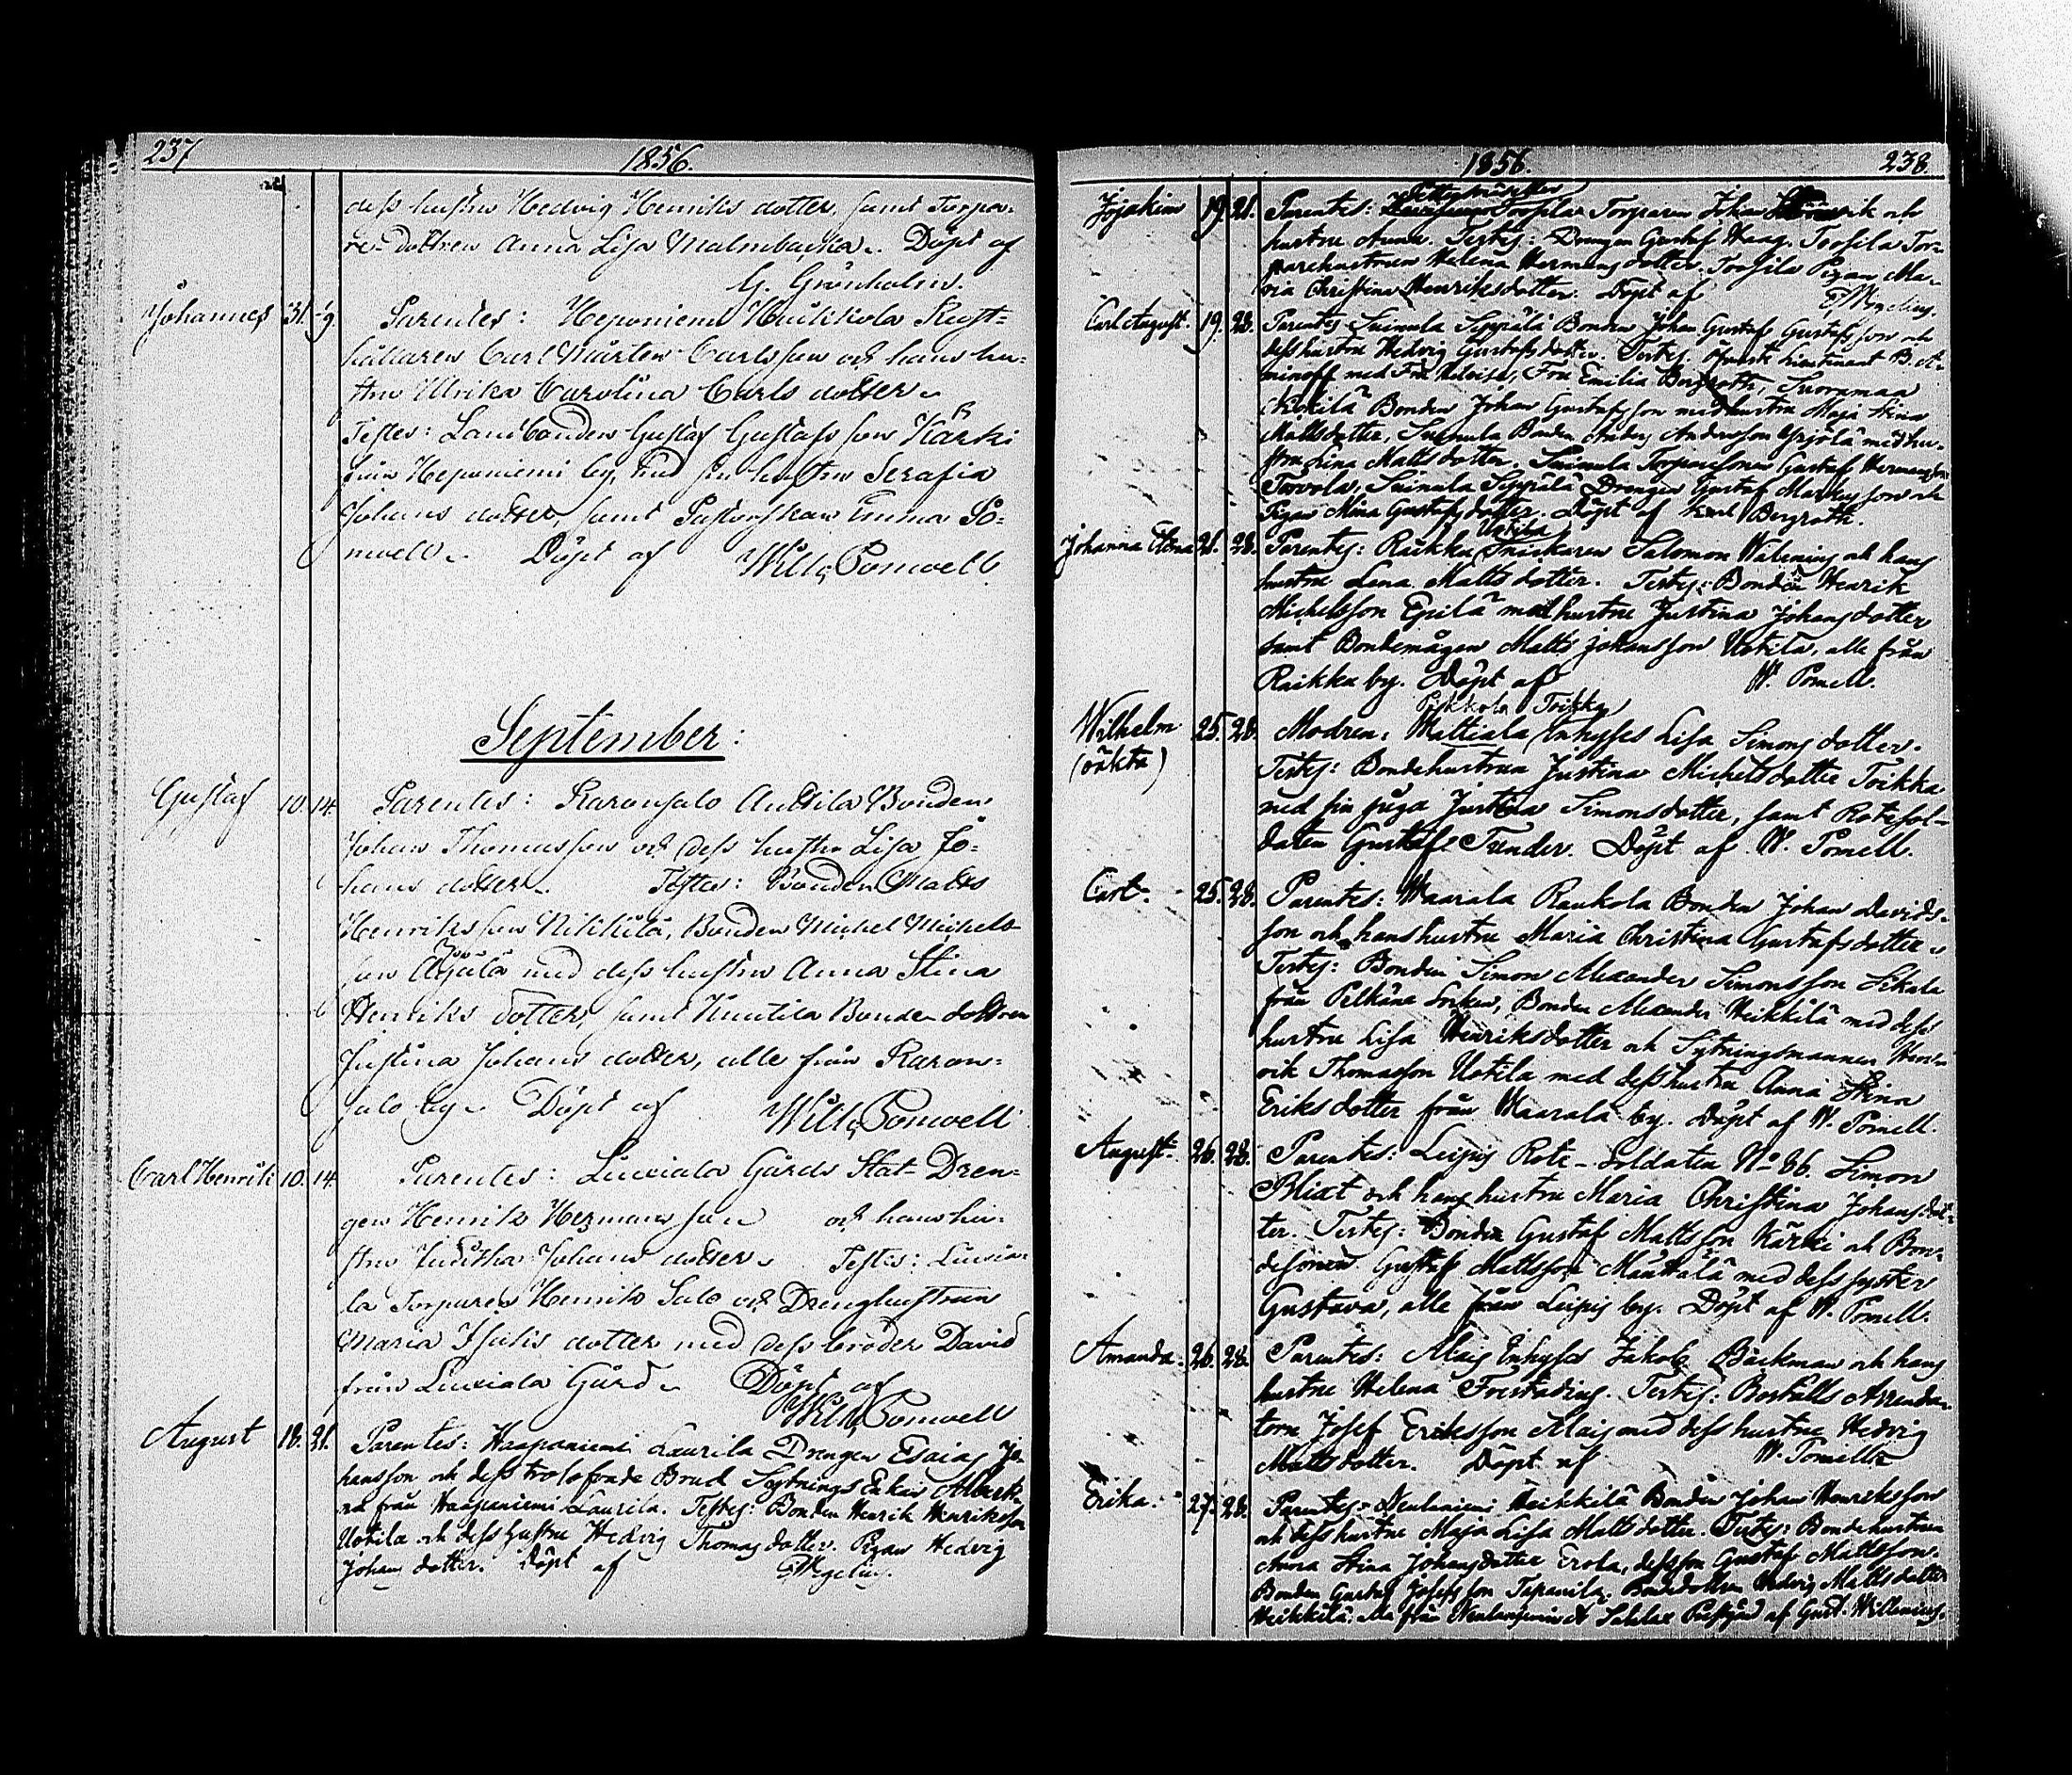 237
1856.
dess hustru Hedvig Henriks dotter, samt Torpa-
re-dottren Anna Lisa Malmbacka. Döpt af
G. Grönholm.
Johannes 31. 9. Parentes: Heponiemi Huilikola Rust-
hållaren Carl Mårten Carlsson och hans hu-
stru Ulrika Carolina Carls dotter.
Testes: Landbonden Gustaf Gustafsson Kärki
från Heponiemi by, med sin hustru Serafia
Johans dotter, samt Pastorskan Emma Po-
nwell. Döpt af Wilh. Ponwell.
September:
Gustaf 10. 14. Parentes: Raronsalo Anttila Bonden
Johan Thomasson och dess hustru Lisa Jo-
hans dotter. Testes: Bonden Matts
Henriksson Nikkilä, Bonden Michel Michels-
son med dess hustru Anna Stina
Henriks dotter, samt Knutila Bonden dottren
Justina Johans dotter, alle från Raron-
salo by. Döpt af Wilh. Ponwell
Carl Henrik 10. 14. Parentes: Liuxiala Gårds Stat-Dren-
gen Henrik Hermansson och hans hu-
stru Juditha Johans dotter. Testes: Liuxia-
la Torparen Henrik Salo och Dreng hustrun
Maria Isaks dotter med dess broder David
från Liuxiala Gård. Döpt af
Wilh. Ponwell
August 18. 21. Parentes: Haapaniemi Laurila Drengen Esaias Jo-
hansson och dess trolofvade Brud Sytnings Enkan
från Haapaniemi Laurila. Testes: Bonden Henrik Henriksson
Uotila och dess hustru Hedvig Thomas dotter. Pigan Hedvig
Johans dotter. Döpt af Wegelius.
1856. 238
Jojakim 19. 21. Parentes: Torparen Johan och
hustru Anna. Testes: Drengen Gustaf Haag. Toosila Tor-
parehustrun Helena Hermans dotter. Toosila Pigan Ma-
ria Christina Henriksdotter. Döpt af Wegelius.
Carl August. 19. 28. Parentes Suinula Seppälä Bonden Johan Gustaf Gustafsson och
dess hustru Hedvig Gustafs dotter. Testes. Öfverste Lieutenant B. A-
minoff med Fru Fru Emilia Bergroth, Suoramaa
Bonden Johan Gustafsson med hustru Maja Stina
Mattsdotter, Suinula Bonden Anders Andersson Yrjölä med hu-
stru Lina Matts dotter, Suinula Torparesonen Gustaf Hermansson
Torvola, Suinula Seppälä Drengen Gustaf Markusson och
Pigan Mina Gustafs dotter. Döpt af Karl Bergroth.
Uotila
Johanna Elena 21. 28. Parentes: Raikku Snickaren Salomon Walenius och hans
hustru Lena Matts dotter. Testes: Bonden Henrik
Michelsson Epilä med hustru Justina Johans dotter
samt Bondemågen Matts Johansson Uotila, alle från
Raikku by. Döpt af W. Ponwell.
Pikkola Toikka
Wilhelm 25. 28. Modren: Mattiala Inhyses Lisa Simons dotter.
(oäkta) Testes: Bondehustrun Justina Michelsdotter Toikka
med sin piga Justina Simonsdotter, samt Rotesol-
daten Gustaf Tunder. Döpt af W. Ponwell.
Carl. 25. 28. Parentes: Haarala Raukola Bonden Johan Davids-
son och hans hustru Maria Christina Gustafsdotter.
Testes: Bonden Simon Alexander Simonsson Sikala
från Pelkäne Socken, Bonden Alexander Heikkilä med dess
hustru Lisa Henriksdotter och Sytningsmannen Hen-
rik Thomasson Uotila med dess hustru Anna Stina
Eriks dotter från Haarala by. Döpt af W. Ponwell.
August 26. 28. Parentes: Leipis Rote-Soldaten No 86. Simon
Blixt och hans hustru Maria Christina Johans dot-
ter. Testes: Bonden Gustaf Mattsson Kärki och Bon-
desonen Gustaf Mattsson Mänttälä med dess syster
Gustava, alle från Leipis by. Döpt af W. Ponwell.
Amanda. 26. 28. Parentes: Alais Inhyses Jakob Bäckman och hans
hustru Helena Forstadius. Testes: Boställs Arrenda-
torn Josef Eriksson Alais med dess hustru Hedvig
Mattsdotter. Döpt af W. Ponwell.
Erika. 27. 28. Parentes: Neulaniemi Heikkilä Bonden Johan Henriksson
och dess hustru Maja Lisa Matts dotter. Testes: Bondehustrun
Anna Stina Johansdotter Erola, dess son Gustaf Mattsson.
Bonden Gustaf Josefsson Tepanila, Bondedottren Hedvig Matts dotter
Heikkilä. Alla från af Gust. Willenius.